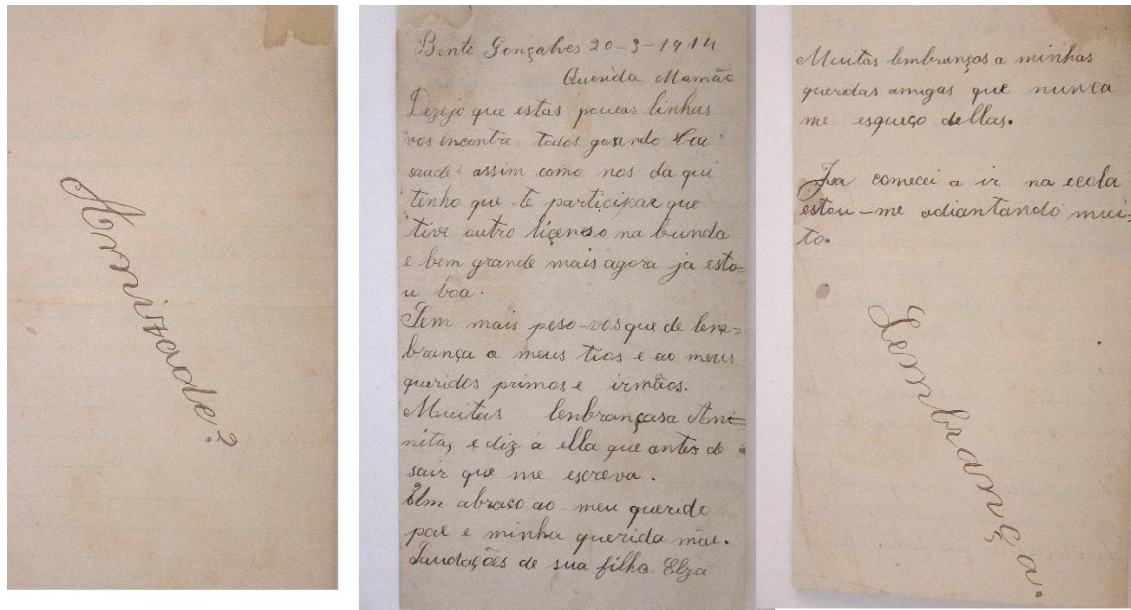 Amizade?
Bento Gonçalves 20-3-1914
Querida Mamãe
Dezejo que estas poucas linhas
vos encontre todos gosando boa
saude assim como nos da qui
tenho que te participar que
tive outro liçenso na bunda
e bem grande mais agora ja esto-
u boa.
Tem mais peso-vos que de lem=
brança a meus tios e ao meus
queridos primos e irmãos.
Muitas lenbranças a Ani=
nita, e diz a ella que antes de
sair que me escreva.
Um abraço ao meu querido
pae e minha querida mãe.
Saudações de sua filha Elza
Muitas lembranças a minhas
queridas amigas que nunca
me esqueço dellas.
Jha comecei a ir na ecola
estou-me adiantando mui-
to.
Lembrança.